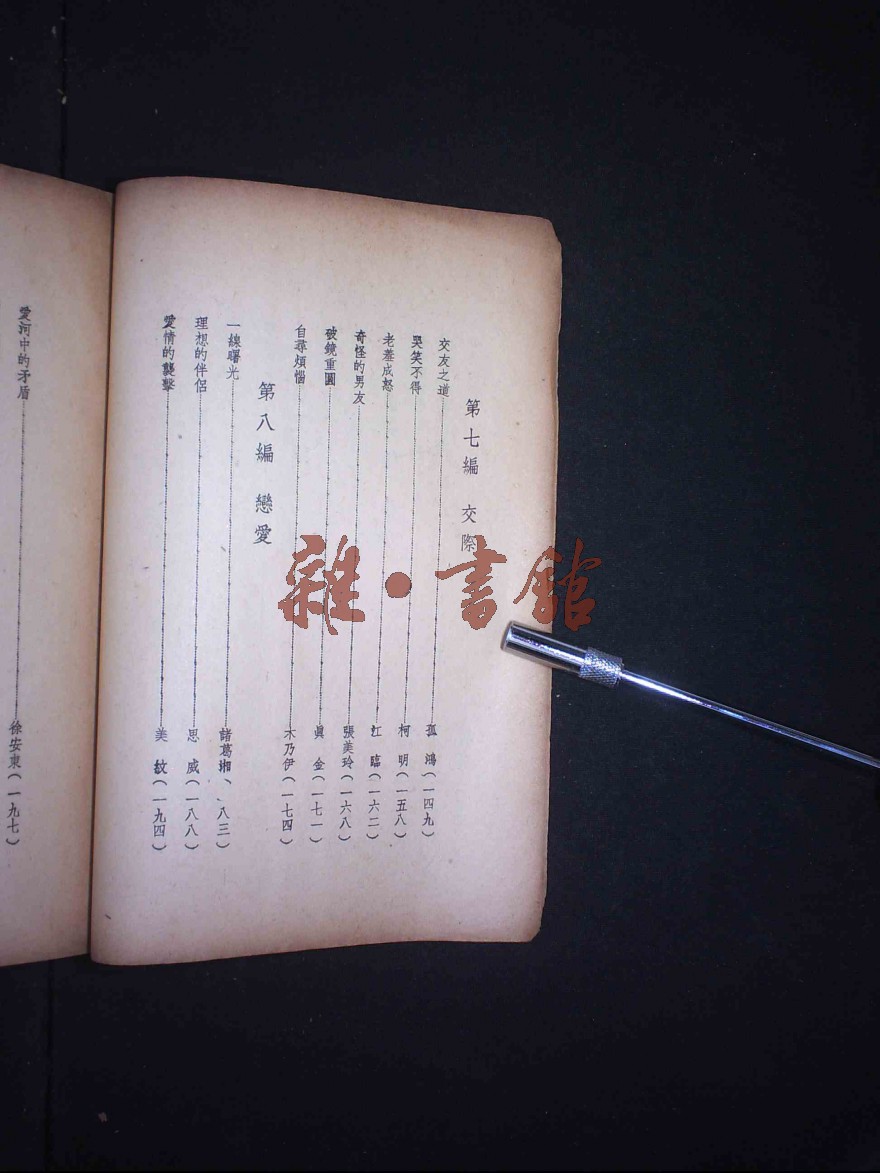 第七編 交際
交友之道 孤鴻(一四九)
哭笑不得 柯明(一五八)
老羞成怒 江臨(一六二)
奇怪的男友 張美玲(一六八)
破鏡重圓 眞金(一七一)
自尋煩惱 木乃伊(一七四)
第八編 戀愛
一線曙光 諸葛湘 八三)
理想的伴侶 思威(一八八)
愛情的襲擊 美紋(一九四)
愛河中的矛盾 徐安東(一九七)
雜・書館